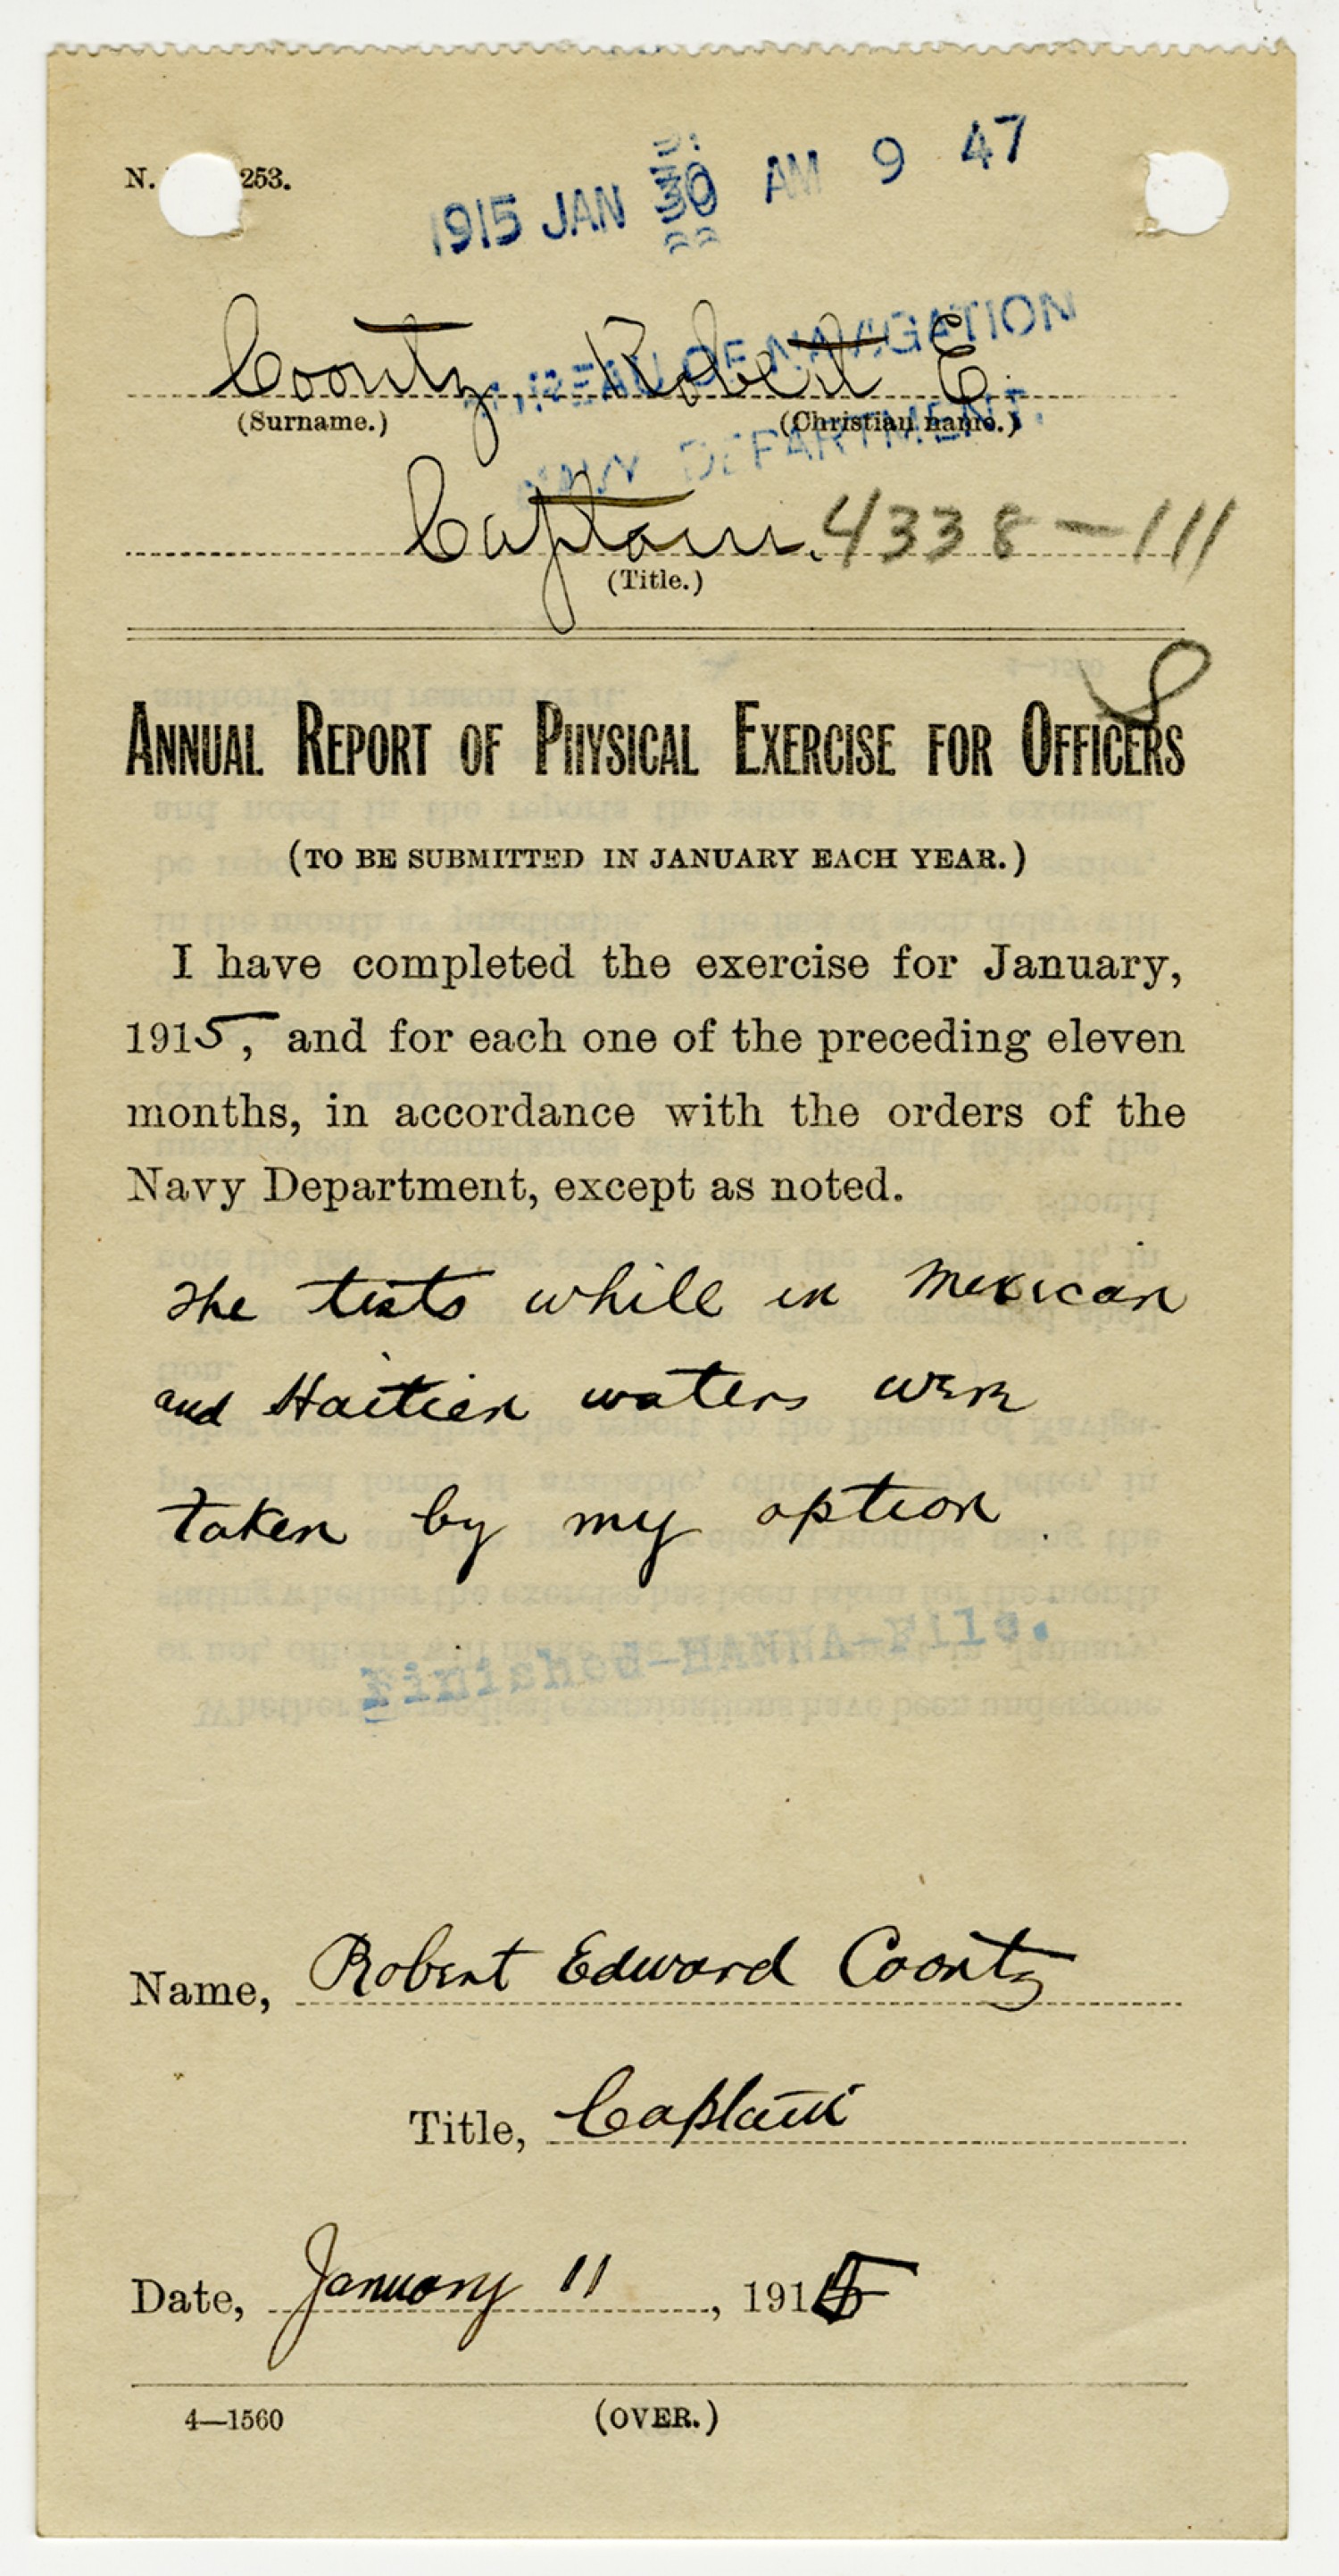 N. 253.
1915 JAN 30 AM 9 47
Coontz, Robert E.
BUREAU OF NAVIGATION
(Surname.) (Christian name.)
NAVY DEPARTMENT.
Captain. 4338-111
(Title.)
ANNUAL REPORT OF PHYSICAL EXERCISE FOR OFFICERS
(TO BE SUBMITTED IN JANUARY EACH YEAR.)
I have completed the exercise for January,
1915, and for each one of the preceding eleven
months, in accordance with the orders of the
Navy Department, except as noted.
The tests while in Mexican
and Haitien waters were
taken by my option.
Finished-HANNA-File.
Name, Robert Edward Coontz
Title, Captain
Date, January 11, 1915
4—1560 (OVER.)